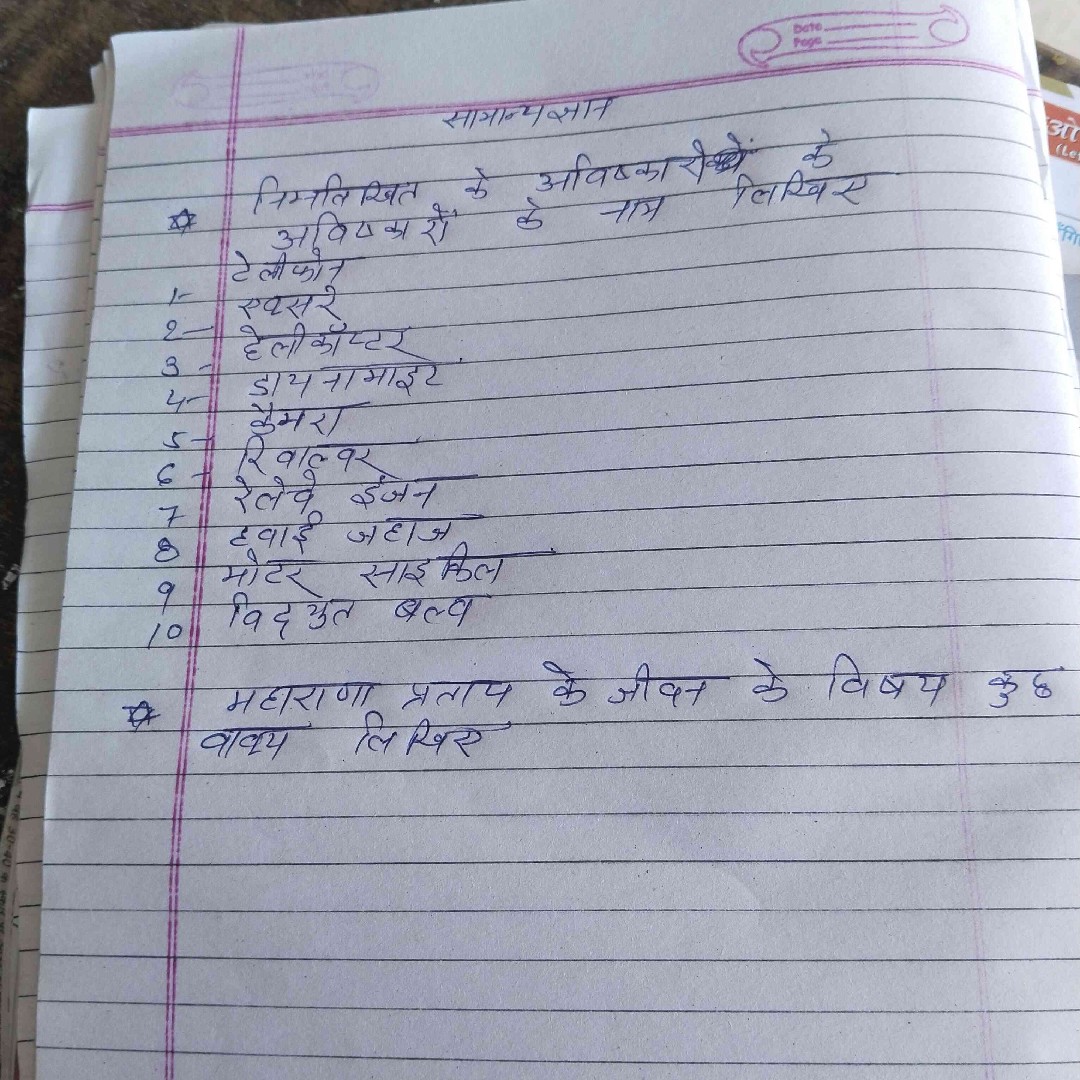 Date
Page
सामान्य ज्ञान
निम्नलिखित के अविष्कारों के
अविष्कारों के नाम लिखिए
1- टेलीफोन
2- एक्सरे
3- हेलीकॉप्टर
4- डायनामाइट
5- कैमरा
6- रिवाल्वर
7 रेलेवे इंजन
8 हवाई जहाज
9 मोटर साइकिल
10 विद्युत बल्व
महाराणा प्रताप के जीवन के विषय कुछ
वाक्य लिखिए
ओ